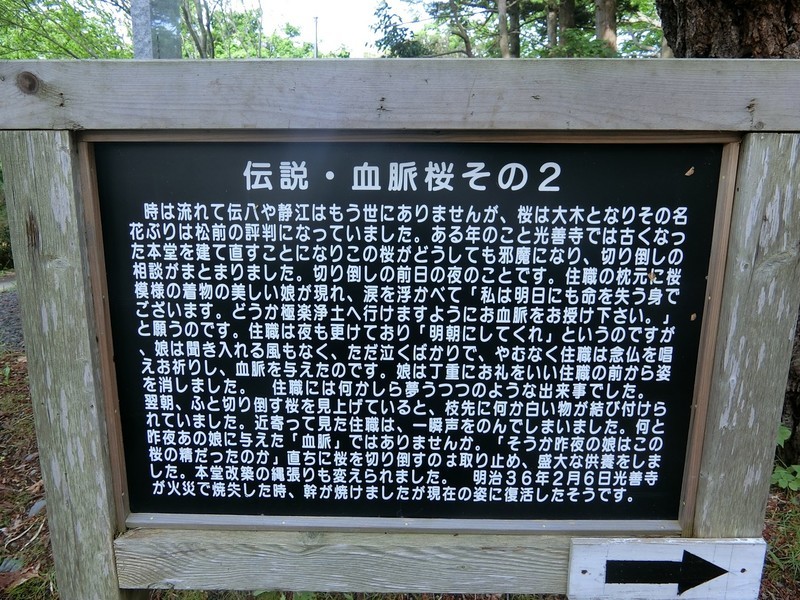 伝説・血脈桜その2
時は流れて伝八や静江はもう世にありませんが、桜は大木となりその名
花ぶりは松前の評判になっていました。ある年のこと光善寺では古くなっ
た本堂を建て直すことになりこの桜がどうしても邪魔になり、切り倒しの
相談がまとまりました。切り倒しの前日の夜のことです。住職の枕元に桜
模様の着物の美しい娘が現れ、涙を浮かべて「私は明日にも命を失う身で
ございます。どうか極楽浄土へ行けますようにお血脈をお授け下さい。」
と願うのです。住職は夜も更けており「明朝にしてくれ」というのですが
、娘は聞き入れる風もなく、ただ泣くばかりで、やむなく住職は念仏を唱
えお祈りし、血脈を与えたのです。娘は丁重にお礼をいい住職の前から姿
を消しました。 住職には何かしら夢うつつのような出来事でした。
翌朝、ふと切り倒す桜を見上げていると、枝先に何か白い物が結び付けら
れていました。近寄って見た住職は、一瞬声をのんでしまいました。何と
昨夜あの娘に与えた「血脈」ではありませんか。「そうか昨夜の娘はこの
桜の精だったのか」直ちに桜を切り倒すのは取り止め、盛大な供養をしま
した。本堂改築の縄張りも変えられました。 明治36年2月6日光善寺
が火災で焼失した時、幹が焼けましたが現在の姿に復活したそうです。